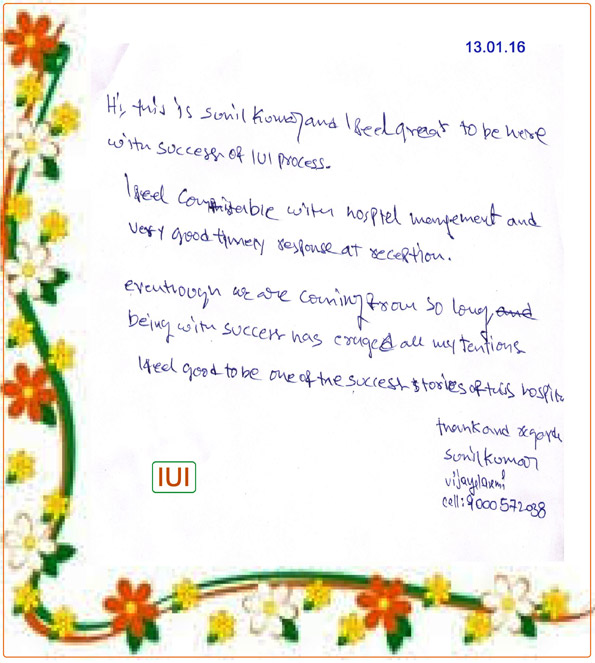 13.01.16
Hi, this is sunil kumar and I feel great to be here
with success of IUI process.
I feel comfirtible with hospitel mangement and
very good timely response at reception.
eventhough we are coming from so long and
being with success has eraged all my tentions
I feel good to be one of the success stories of this hospita
thank and regards
sunil kumar
vijayalaxmi
cell: 9000572038
IUI